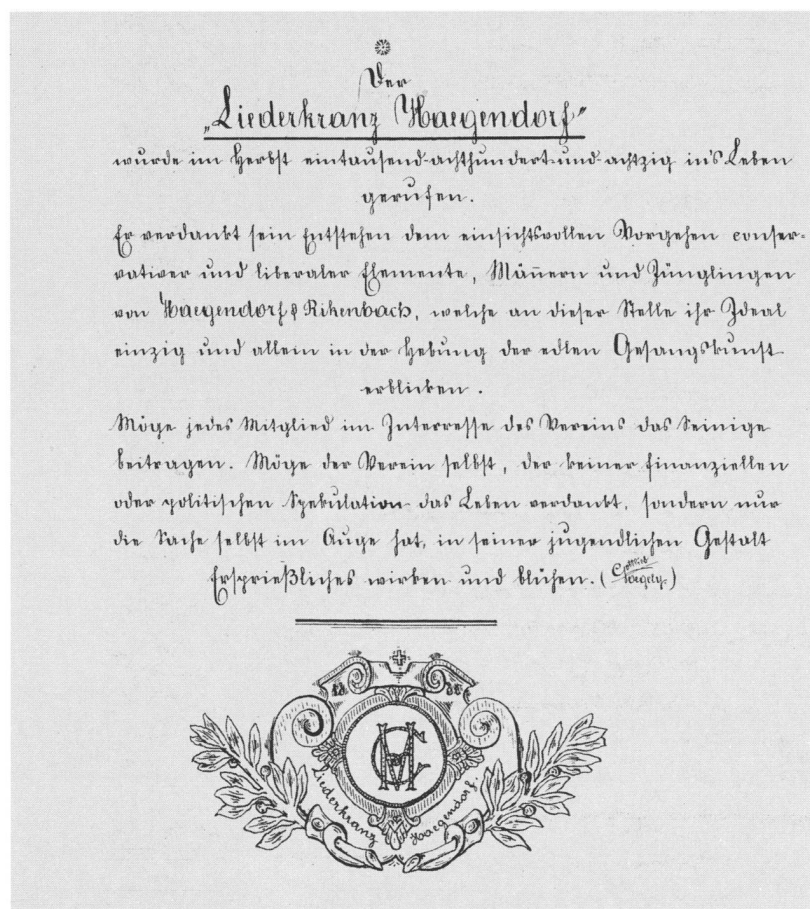 Der
„Liederkranz Haegendorf"
wurde im Herbst eintausend-achthundert-und-achtzig in's Leben
gerufen.
Er verdankt sein Entstehen dem einsichtsvollen Vorgehen conser-
vativer und liberaler Elemente, Mäñern und Jünglingen
von Haegendorf & Rikenbach, welche an dieser Stelle ihr Ideal
einzig und allein in der Hebung der edlen Gesangskunst
erblicken.
Möge jedes Mitglied im Interresse des Vereins das Seinige
beitragen. Möge der Verein selbst, der keiner finanziellen
oder politischen Spekulation das Leben verdankt, sondern nur
die Sache selbst im Auge hat, in seiner jugendlichen Gestalt
Ersprießliches wirken und blühen. (
Liederkranz Haegendorf.